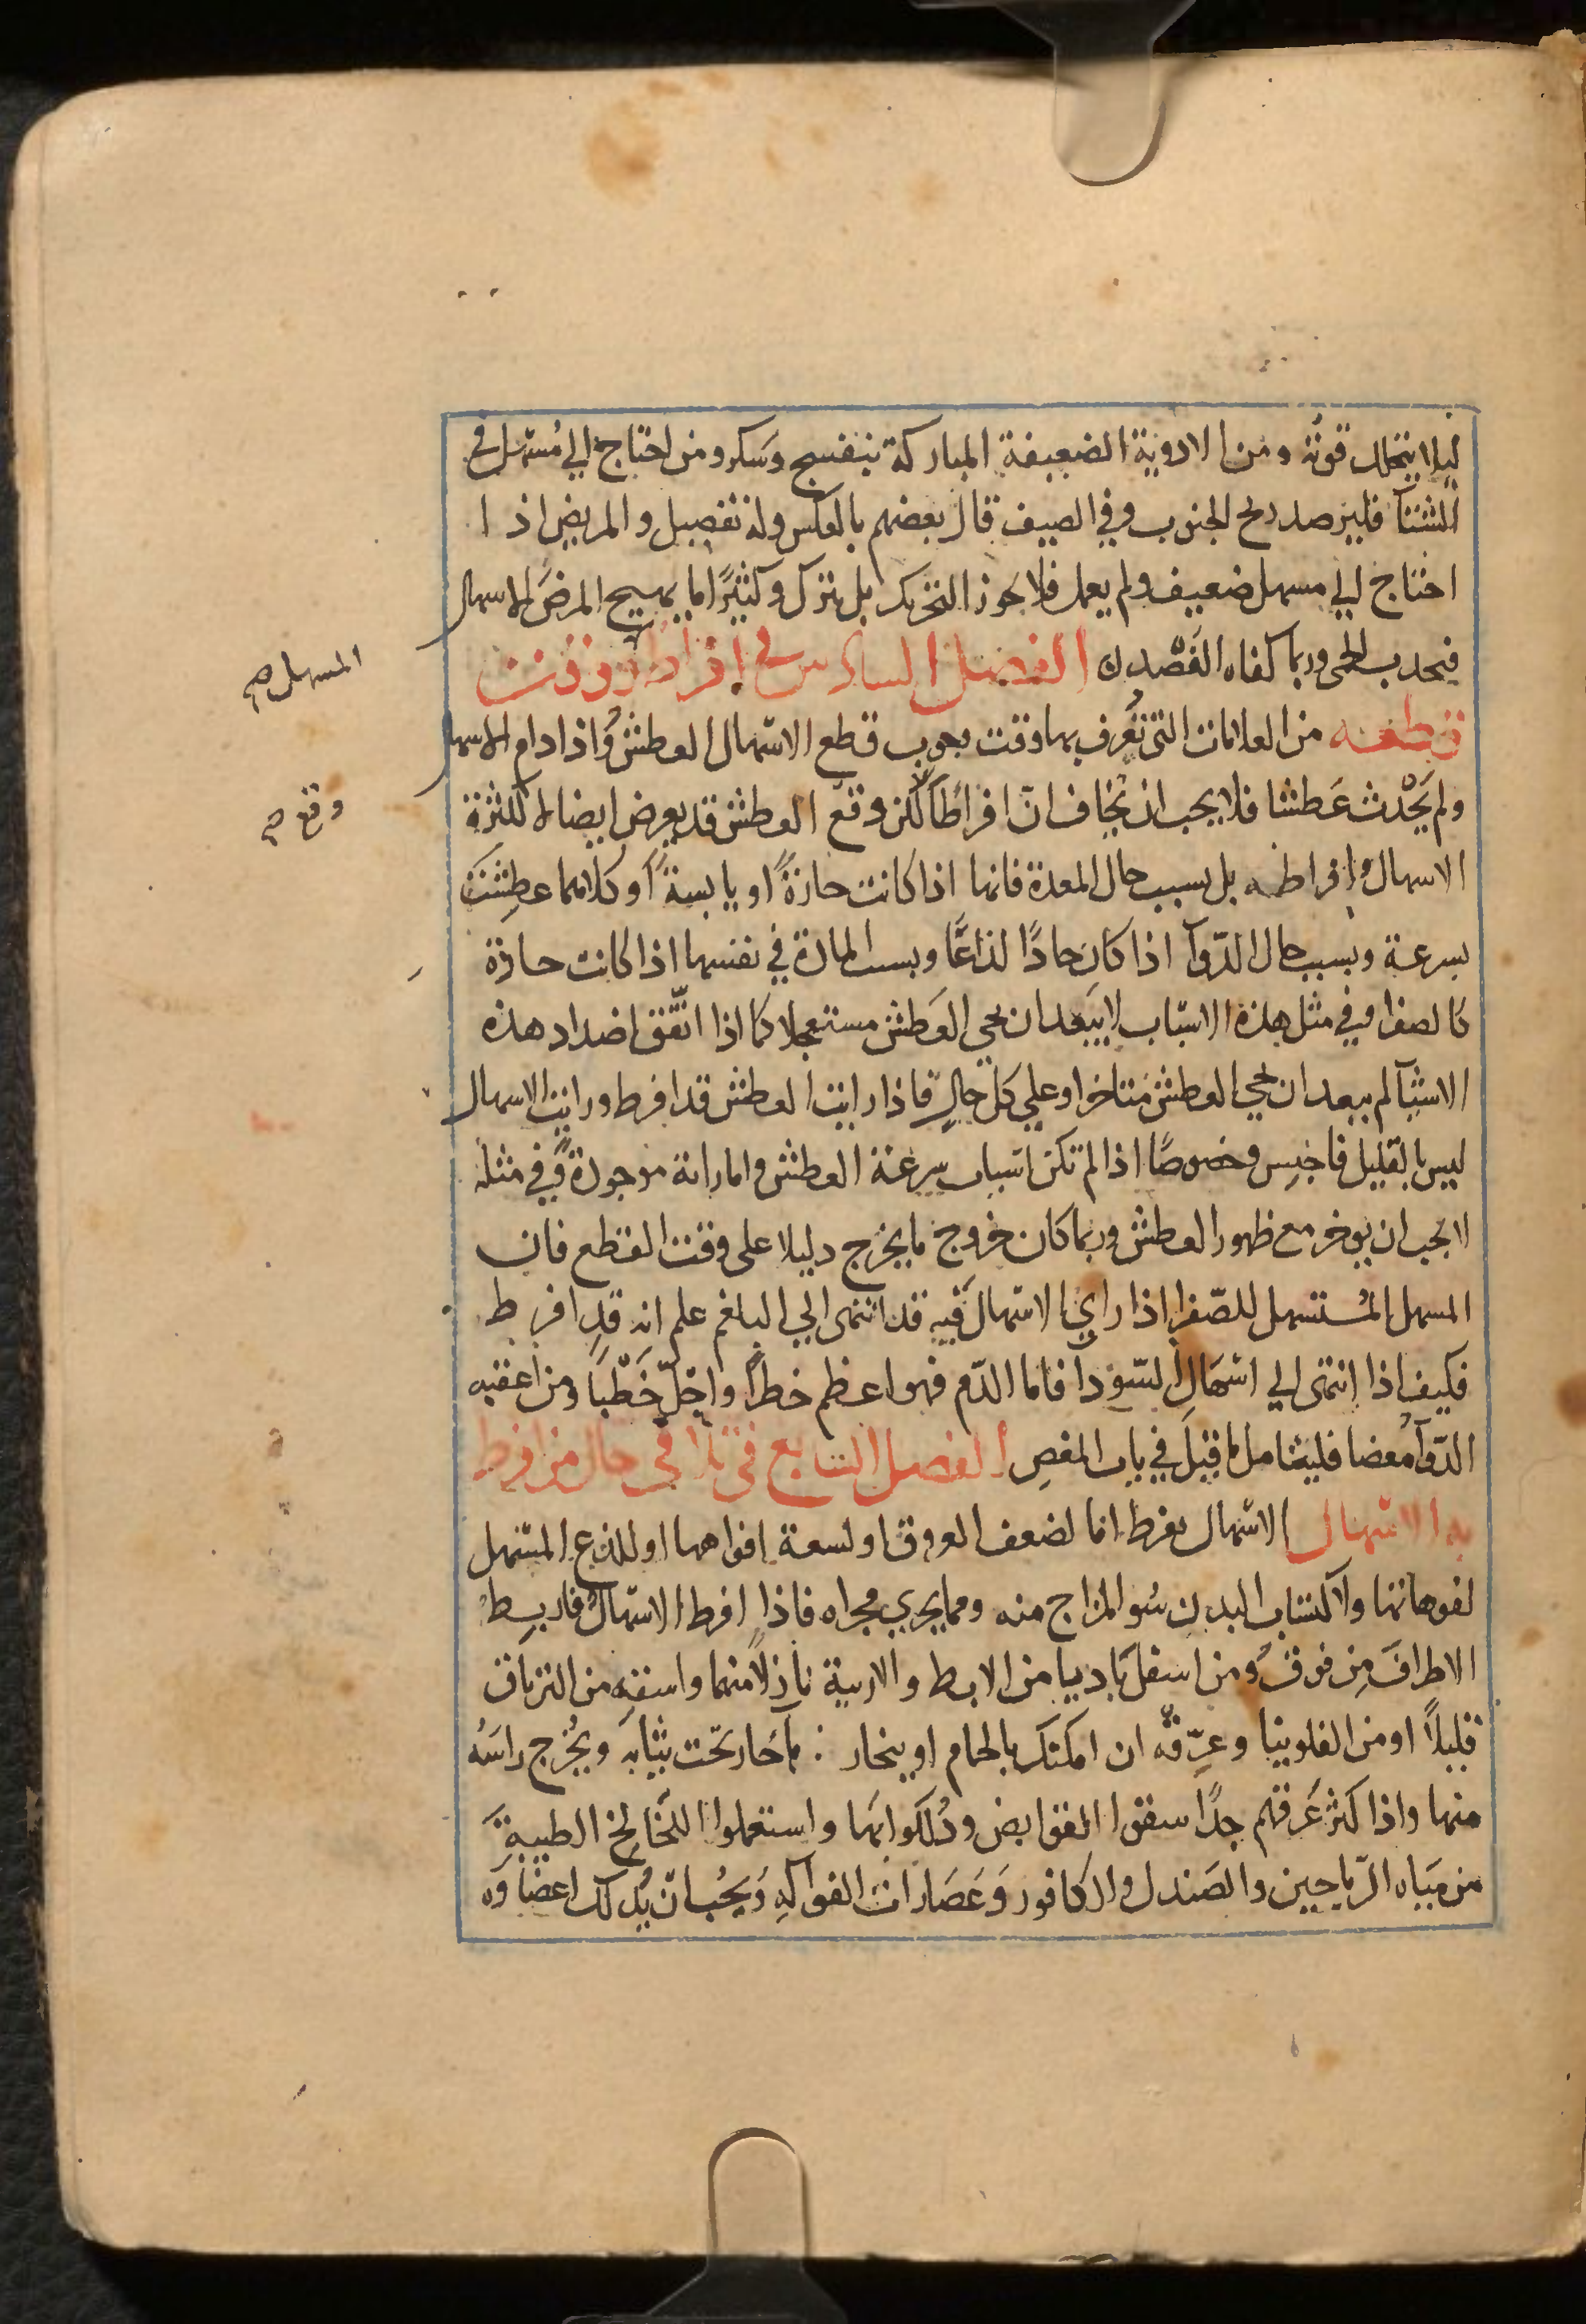 ليلا يتحلل قوته ومن الادوية الضعيفة المباركة بنفسج وسكر ومن احتاج الي مُسهل في
الشتآ فليرصد ريح الجنوب وفي الصيف قال بعضهم بالعكس وله تفصيل والمريض اذا
احتاج الي مسهل ضعيف ولم يعمل فلا يجوز التحريك بل يترك وكثيرًا ما يهيج المرض الاسهال
فيحدث الحمى وربما كفاه الفَصْد الفصل السادس في افراط ووقت
قطعه من العلامات التي تُعرف بها وقت يجوب قطع الاسْهال العطش وُاذا دام الاسها
ولم يَحْدث عَطشا فلا يجب ان يُخاف انّ افراطًا لكن وقع العطش قد يعرض ايضا لا لكثرة
الاسهال وافراطه بل بسبب حال المعدة فانها اذا كانت حارةً او يابسةً او كلاهما عطِشَت
بسرعة وبسبب حال الدّوآ اذا كان حادًا لذاعًّا وبسبب المادة في نفسها اذا كانت حارة
كالصفرا وفي مثل هذه الاسْباب لا يَبعد ان يجي العَطش مستعجلا كما اذا اتّفق اضداد هذه
الاشيآ لم يبعد ان يجي العطش متاخرا وعلي كل حالٍ فاذا رايت العطش قد افرط ورايت الاسهال
ليس بالقليل فاحبس وخصوصًا اذا لم تكن اسباب سرعة العطش واماراته موجودة وفي مثله
لا يجب ان يوخر مع ظهور العطش وربما كان خروج ما يخرج دليلا على وقت القطع فان
المسهل المُستسهل للصّفرا اذا راي الاسْهال فيه قد انتهى الي البلغم علم انه قد افرط
فكيف اذا انتهى الي اسْهَال السّودا فاما الدّم فهو اعظم خطرًا واجَلّ خَطْبًا ومن اعقبه
الدّوآ مُغصا فليتامل ما قيلَ في باب المغص الفصل السابع في تلافي حال من افرط
به الاسْهال الاسْهال يفرط اما لضعف العروق او لسعة افواهها او للذع المسْهل
لفوهاتها ولاكتساب البدن سُو المزاج منه ومما يجري مجراه فاذا افرط الاسْهالُ فاربط
الاطرافَ مِن فوقُ ومن اسفل بَاديا من الابط والاربية نازلاً منهما واسقِه من الترياق
قليلاً او من الفلونيا وعرّقه ان امكنك بالحمام او بخار: مآ حار تحت ثيابه ويُخرج راسَه
منها واذا كثر عَرقهم جدًا سقوا القوابض ودُلكوا بَها واستعملوا اللَخَالخ الطيبةِ
من مَياه الرّياحين والصَندل والكافور وَعَصَارات الفواكهِ وَيجُب انّ يُدلك اعضَاوه
المسهل صح
وقع صح